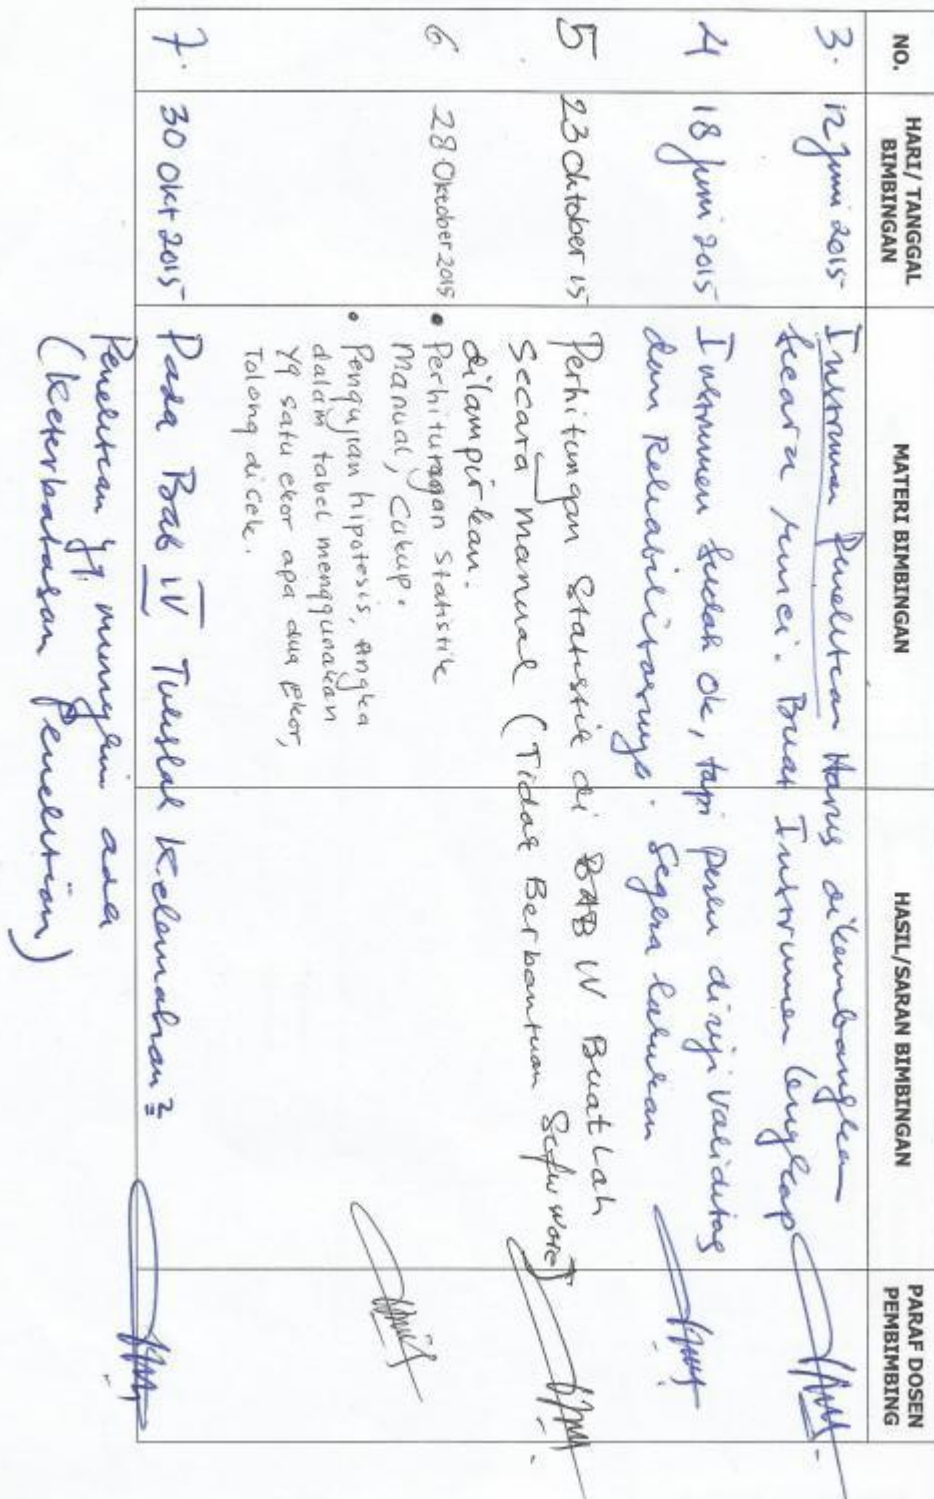 NO.
HARI/ TANGGAL BIMBINGAN
MATERI BIMBINGAN
HASIL/SARAN BIMBINGAN
PARAF DOSEN PEMBIMBING
3.
12 Juni 2015
Instrumen Penelitian Harus dikembangkan
secara rinci. Buat Instrumen lengkap
4
18 Juni 2015
Instrumen sudah ok, tapi perlu diuji Validitas
dan Reliabilitasnya. Segera lakukan
5
23 Oktober 15
Perhitungan Statistik di BAB IV Buatlah
secara manual (Tidak Berbantuan Software)
dilampirkan.
6
28 Oktober 2015
• Perhitungan Statistik
Manual, Cukup.
• Pengujian hipotesis, Angka
dalam tabel menggunakan
yg satu ekor apa dua Ekor,
Tolong dicek.
7.
30 Okt 2015
Pada Bab IV Tulislah Kelemahan2
Penelitian yg mungkin ada
(Keterbatasan Penelitian)